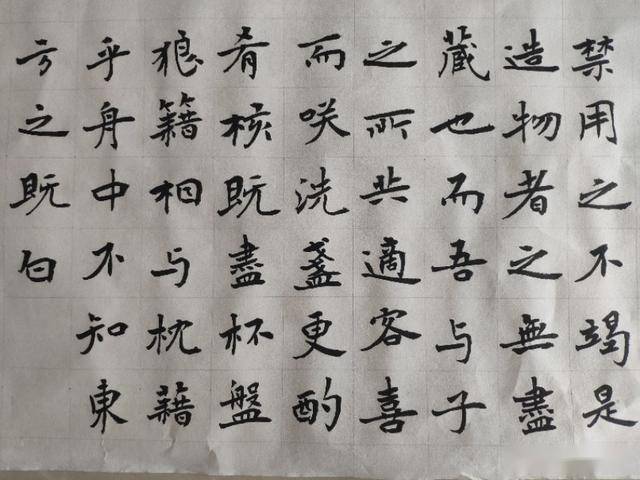 禁用之不竭是
造物者之無盡
藏也而吾与子
之所共適客喜
而咲洗盞更酌
肴核既盡杯盤
狼籍相与枕藉
乎舟中不知東
方之既白